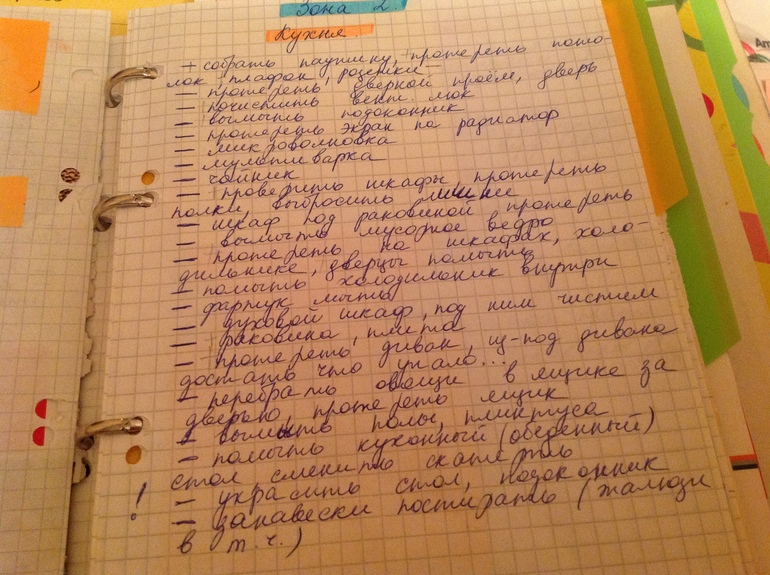 Зона 2.
Кухня.
– собрать паутину, протереть пото-
лок, плафон, розетки
– протереть дверной проём, дверь
– почистить вент. люк
– вымыть подоконник
– протереть экран на радиатор
– микроволновка
– мультиварка
– чайник
– проверить шкафы, протереть
полки, выбросить лишнее
– шкаф под раковиной протереть
– вымыть мусорное ведро
– протереть на шкафах, холо-
дильнике, дверцы помыть
– помыть холодильник внутри
– фартук мыть
– духовой шкаф, под ним чистим
– раковина, плита
– протереть диван, из-под дивана
достать что упало...
– перебрать овощи в ящике за
дверью, протереть ящик
– вымыть полы, плинтуса
– помыть кухонный (обеденный)
стол сменить скатерть
! – украсить стол, подоконник
– занавески постирать (жалюзи
в т.ч.)